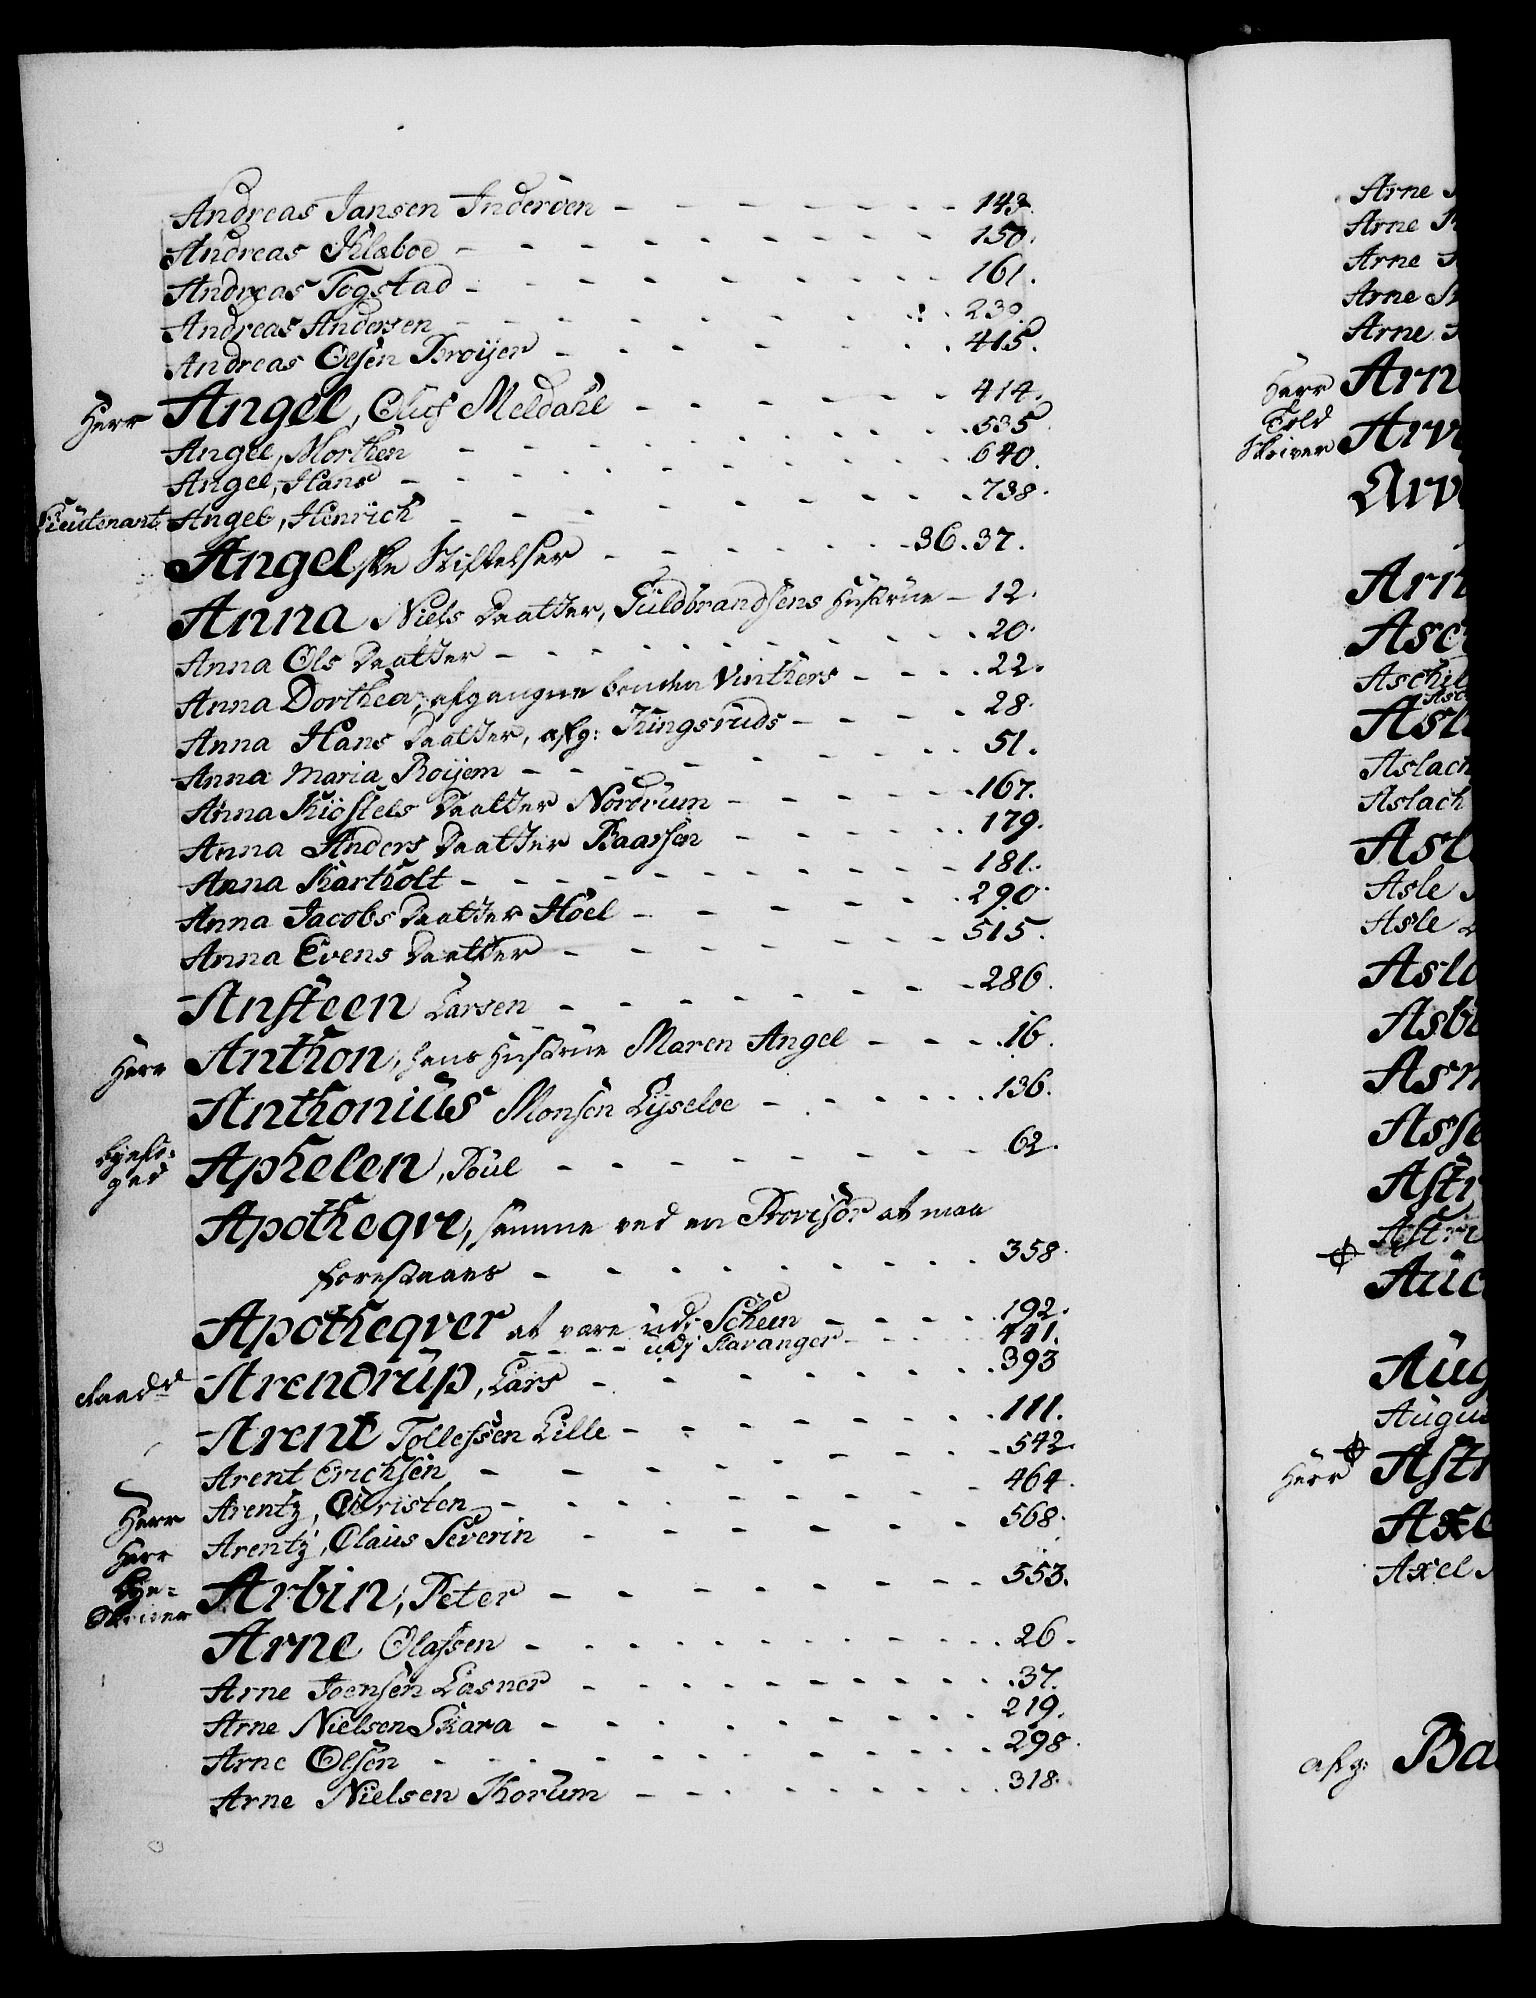 Andreas Jansen Inderöen - - - - - - - 143.
Andreas Klæboe - - - - - - - - - 150.
Andreas Togstad - - - - - - - - - 161.
Andreas Andersen - - - - - - - - 230.
Andreas Olsen Broijer - - - - - - - 415.
Herr Angel, Oluf Meldahl - - - - - - 414.
Angel, Morthen - - - - - - - - - 535
Angel, Hans - - - - - - - - - 640.
Lieutenant Angel, Henrich - - - - - - - - 738.
Angelske Stiftelser - - - - - - 36. 37.
Anna Niels Daatter, Guldbrandsens Hustrue - 12.
Anna Ols Daatter - - - - - - - - - 20.
Anna Dorthea, afgangne Vinthers - - - - 22.
Anna Hans Daatter, afg: Kingsruds - - - - 28.
Anna Maria Roijem - - - - - - - - 51.
Anna Kiøstels Daatter Nordrum - - - - - 167.
Anna Anders Daatter Baarsen - - - - - 179.
Anna Kartholt - - - - - - - - - 181.
Anna Jacobs Daatter Höel - - - - - - 290.
Anna Evens Daatter - - - - - - - 515.
Ansteen Larsen - - - - - - - - 286.
Herr Anthon, hans Hustrue Maren Angel - - - 16.
Anthonius Monsen Lijseloe - - - - - - 136.
Byefo-
ged Aphelen, Poul - - - - - - - - 62.
Apotheqve, samme ved en Provisor at maa
forestaaes - - - - - - - - - 358.
Apotheqver at være udj Scheen - - - - 192.
- - - - udj Stavanger - - - 441.
Raad Arendrup, Lars - - - - - - - 393
Arent Tollefssen Lille - - - - - - - 111.
Arent Erichsen - - - - - - - - 542.
Herr Arentz, Christen - - - - - - - - 464.
Herr Arentz, Olaus Severin - - - - - - 568.
Bye-
Skriver Arbin, Peter - - - - - - - - 553.
Arne Olafsen - - - - - - - - - 26.
Arne Joensen Lasner - - - - - - - - 37.
Arne Nielsen Skara - - - - - - - - 219.
Arne Olsen - - - - - - - - - - 298.
Arne Nielsen Korum - - - - - - - 318.
Arne
Arne
Arne
Arne
Arne
Herr Arn
Told
Skriver Arv
Arv
Asl
Aslach
Aslach
Asl
Asle
Asle
Asb
Asse
Astr
Astri
Aug
Augus
Herr Astr
Axe
Axel
afg: Ba